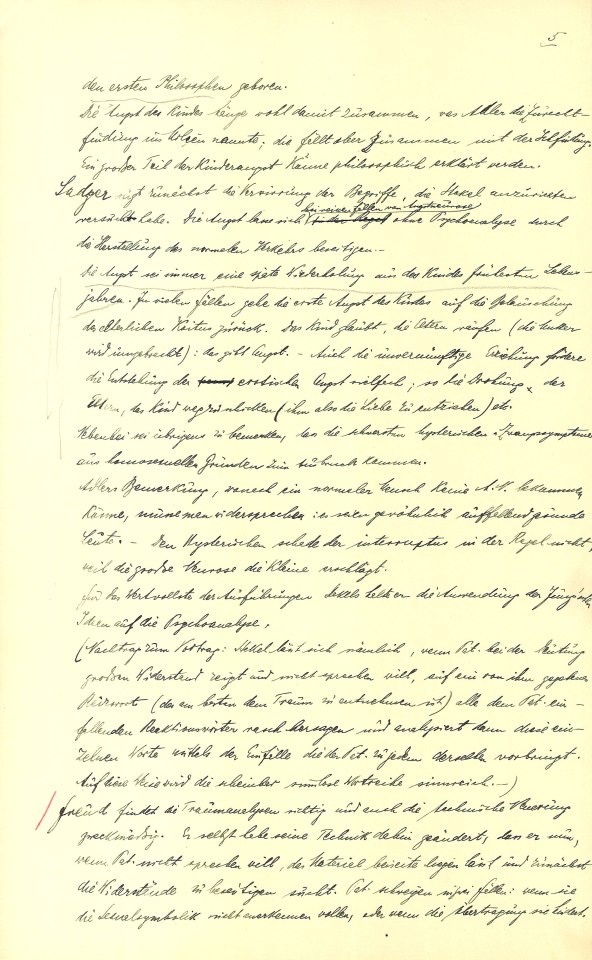 5
den ersten Philosophen geboren.
Die Angst des Kindes hänge wohl damit zusammen, was Adler die Zurecht-
findung ins Wollen nannte; die fällt aber zusammen mit der Ichfindung.
Ein großer Teil der Kinderangst könne philosophisch erklärt werden.
Sadger rügt zunächst die Verwirrung der Begriffe, die Stekel anzurichten
versucht habe. Die Angst lasse sich bei reinen Fällen von Angstneurose ohne Psychoanalyse durch
die Herstellung des normalen Verkehrs beseitigen.-
Die Angst sei immer eine späte Wiederholung aus des Kindes frühesten Lebens-
jahren. In vielen Fällen gehe die erste Angst des Kindes auf die Belauschung
des elterlichen Koitus zurück. Das Kind glaubt, die Eltern raufen (die Mutter
wird umgebracht): das gibt Angst. - Auch die unvernünftige Erziehung fördere
die Entstehung der erotischen Angst vielfach; so die Drohung der
Eltern, das Kind wegzuschicken (ihm also die Liebe zu entziehen) etc.
Nebenbei sei übrigens zu bemerken, dass die schwersten hysterischen Zwangssymptome
aus homosexuellen Gründen zum Ausbruch kommen.
Adlers Bemerkung, wonach ein normaler Mensch keine A.N. bekommen
könne, müsse man widersprechen: es seien gewöhnlich auffallend gesunde
Leute. - Den Hysterischen schade der interruptus in der Regel nicht,
weil die große Neurose die kleine erschlägt.
Für das Wertvollste der Ausführungen Stekels halte er die Anwendung der Jung'schen
Ideen auf die Psychoanalyse.
(Nachtrag zum Vortrag: Stekel läßt sich nämlich, wenn Pat. bei der Deutung
großen Widerstand zeigt und nicht sprechen will, auf ein von ihm gegebenes
Reizwort (das am besten dem Traum zu entnehmen ist) alle dem Pat. ein-
fallenden Reaktionswörter rasch hersagen und analysiert dann diese ein-
zelnen Worte mittels der Einfälle die der Pat. zu jedem derselben vorbringt.
Auf diese Weise wird die scheinbar sinnlose Wortreihe sinnreich.-)
Freud findet die Traumanalysen richtig und auch die technische Neuerung
zweckmäßig. Er selbst habe seine Technik dahin geändert, dass er nun,
wenn Pat. nicht sprechen will, das Material beiseite liegen läßt und zunächst
die Widerstände zu beseitigen sucht. Pat. schweigen in zwei Fällen: wenn sie
die Sexualsymbolik nicht anerkennen wollen, oder wenn die Übertragung sie hindert.